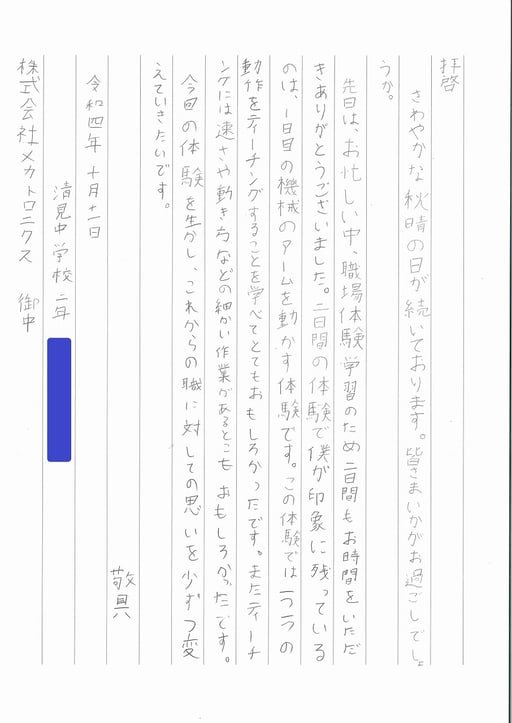 拝啓
さわやかな秋晴の日が続いております。皆さまいかがお過ごしでしょ
うか。
先日は、お忙しい中、職場体験学習のため二日間もお時間をいただ
きありがとうございました。二日間の体験で僕が印象に残っている
のは、一日目の機械のアームを動かす体験です。この体験では一つ一つの
動作をティーチングすることを学べてとてもおもしろかったです。またティーチ
ングには速さや動き方などの細かい作業があるところもおもしろかったです。
今回の体験を生かし、これからの職に対しての思いを少しずつ変
えていきたいです。
敬具
令和四年 十月十一日
清見中学校 二年
株式会社メカトロニクス 御中